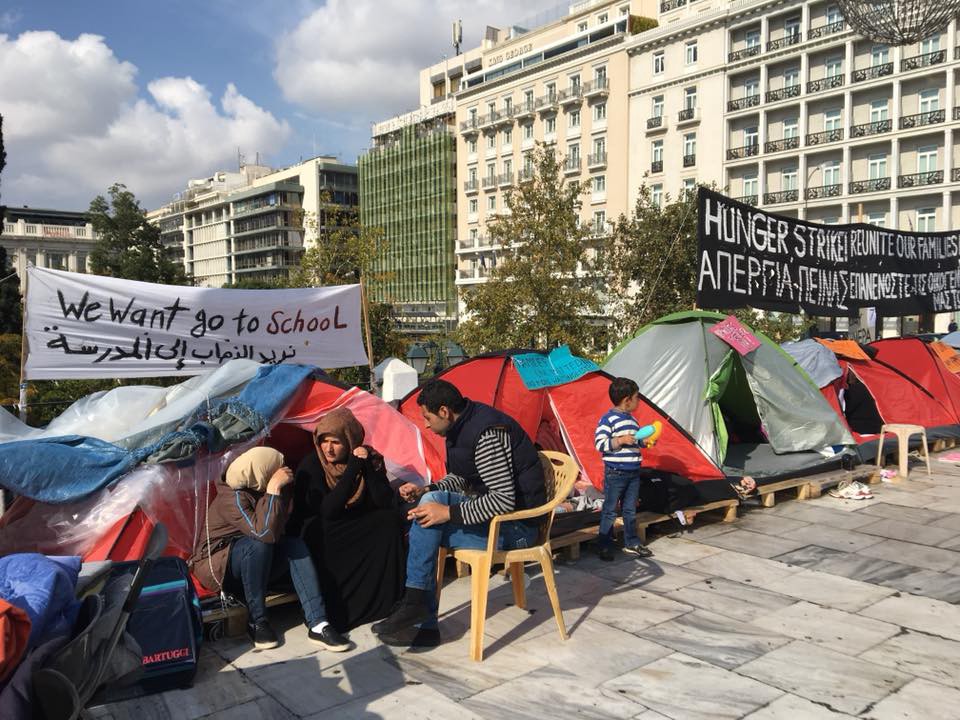 KING GEORGE
We Want go to School
نريد الذهاب إلى المدرسة
HUNGER STRIKE! REUNITE OUR FAMILIES
ΑΠΕΡΓΙΑ ΠΕΙΝΑΣ ΕΠΑΝΕΝΩΣΤΕ ΤΙΣ
BARTUGGI